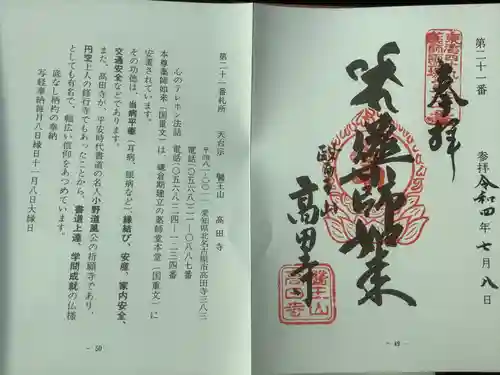 第二十一番
東海四十九
薬師霊場
奉拝
参拝 令和四年七月八日
薬師如来
医王山
高田寺
醫王山
高田寺
- 49 -
第二十一番札所 天台宗 醫王山 高田寺
〒四八一-〇〇一一 愛知県北名古屋市高田寺三八三
電話(〇五六八)二一-〇八八七番
心のテレホン法話 電話(〇五六八)二四-一二三四番
本尊薬師如来(国重文)は 鎌倉期建立の薬師堂本堂(国重文)に
安置されています。
その功徳は、当病平癒(耳病、眼病など)縁結び、安産、家内安全、
交通安全などであります。
また、高田寺が、平安時代書道の名人小野道風公の指願寺であり、
円空上人の修行寺でもあったことから、書道上達、学問成就の仏様
としても有名で、幅広い信仰をあつめています。
底なし柄杓の奉納
写経奉納毎月八日縁日十一月八日大縁日
- 50 -